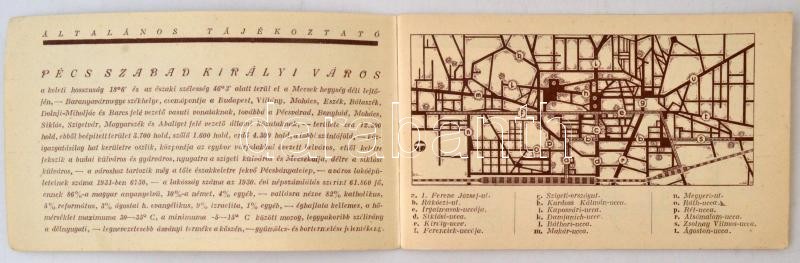 ÁLTALÁNOS TÁJÉKOZTATÓ
PÉCS SZABAD KIRÁLYI VÁROS
a keleti hosszuság 18°6' és az északi szélesség 46°3' alatt terül el a Mecsek hegység déli lejtő-
jén, — Baranyavármegye székhelye, csomópontja a Budapest, Villány, Mohács, Eszék, Bátaszék,
Dolnji-Miholjás és Barcs felé vezető vasuti vonalaknak, továbbá a Pécsvárad, Bonyhád, Mohács,
Siklós, Szigetvár, Magyarszék és Abaliget felé vezető állami közutaknak, — területe
hold, ebből beépitett terület 3.700 hold, szőlő 1.600 hold, erdő 4.309 hold,
igazgatásilag hat kerületre oszlik, központja az egykor
fekszik a budai külváros és gyárváros, nyugatra a szigeti külváros és Mecsekalja, délre a siklósi
külváros, — a városhoz tartozik még a tőle északkeletre fekvő Pécsbányatelep, — a város lakóépü-
leteinek száma 1931-ben 6730, — a lakosság száma az 1930. évi népszámlálás szerint 61.860 fő,
ennek 86% a magyar anyanyelvü, 10% a német, 4% egyéb, — vallásra nézve 82% katholikus,
5% református, 3% ágostai h. evangélikus, 9% izraelita, 1% egyéb, — éghajlata kellemes, a hő-
mérséklet maximuma 30—35° C, a minimuma -5—15° C között mozog, leggyakoribb szélirány
a délnyugati, — legnevezetesebb ásványi terméke a kőszén, — gyümölcs- és bortermelése jelentékeny.
a. I. Ferenc József-ut.
b. Rákóczi-ut.
c. Irgalmasok-uccája.
d. Siklósi-ucca.
e. Király-ucca.
f. Ferenciek-uccája.
g. Szigeti-országut.
h. Kardoss Kálmán-ucca.
i. Kaposvári-ucca.
k. Damjanich-ucca.
l. Báthori-ucca.
m. Makár-ucca.
n. Megyeri-ut.
o. Ráth-ucca.
p. Rét-ucca.
r. Alsómalom-ucca.
s. Zsolnay Vilmos-ucca.
t. Ágoston-ucca.
darabanth